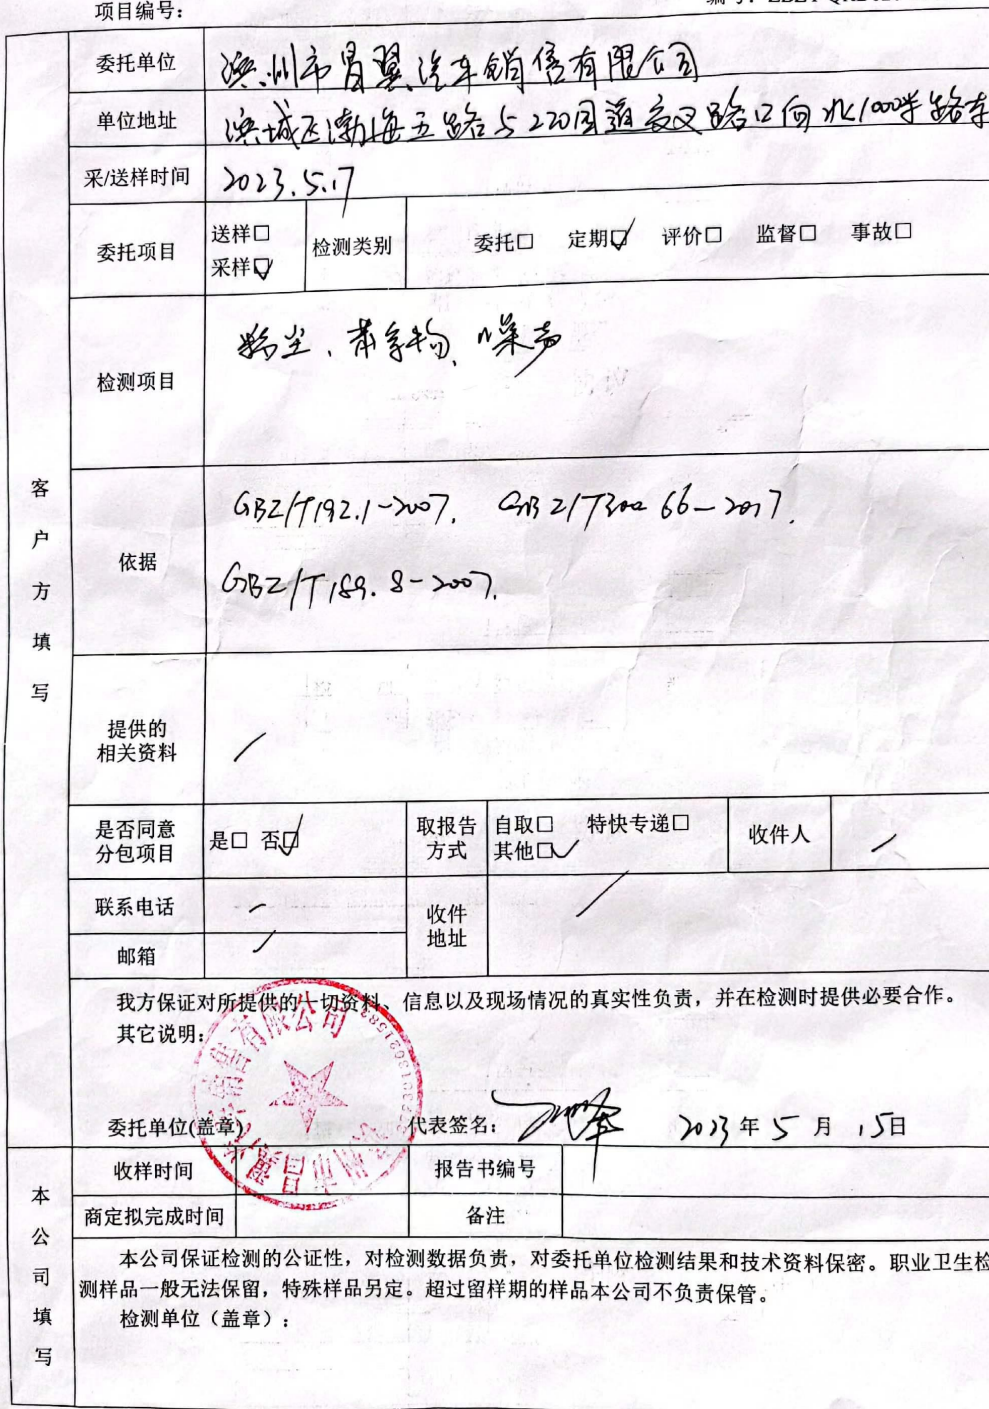 项目编号：
委托单位 滨州市昌翼汽车销售有限公司
单位地址 滨城区渤海五路与220国道交叉路口向北1000米路东
采/送样时间 2023.5.17
委托项目 送样□ 采样☑ 检测类别 委托□ 定期☑ 评价□ 监督□ 事故□
检测项目 粉尘、苯系物、噪声
客户方填写
依据 GBZ/T192.1-2007. GBZ/T300.66-2017.
GBZ/T189.8-2007.
提供的
相关资料 /
是否同意
分包项目 是□ 否☑ 取报告
方式 自取□ 特快专递□
其他☑ 收件人 /
联系电话 /
收件
地址 /
邮箱 /
我方保证对所提供的一切资料、信息以及现场情况的真实性负责，并在检测时提供必要合作。
其它说明：
委托单位(盖章) 代表签名： 2023年5月15日
滨州市昌翼汽车销售有限公司
本公司填写
收样时间 报告书编号
商定拟完成时间 备注
本公司保证检测的公证性，对检测数据负责，对委托单位检测结果和技术资料保密。职业卫生检
测样品一般无法保留，特殊样品另定。超过留样期的样品本公司不负责保管。
检测单位（盖章）：